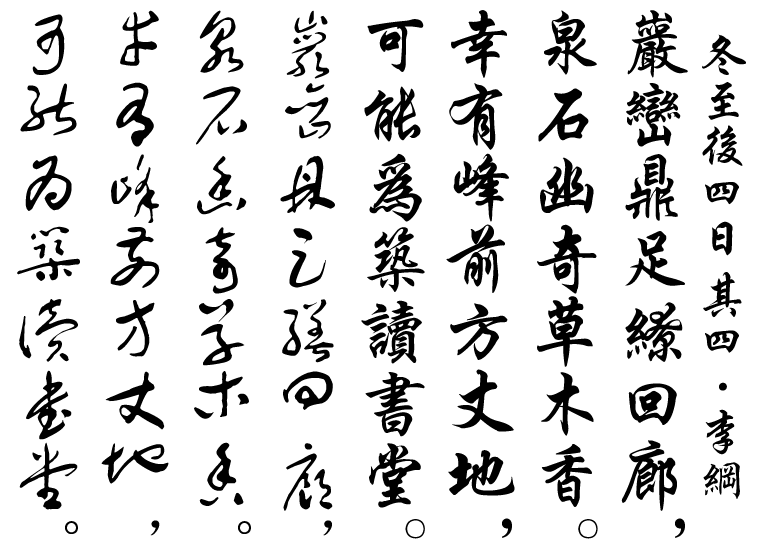 冬至後四日其四・李綱
巖巒鼎足繚回廊，
泉石幽奇草木香。
幸有峰前方丈地，
可能為築讀書堂。
巖巒鼎足繚回廊，
泉石幽奇草木香。
幸有峰前方丈地，
可能為築讀書堂。